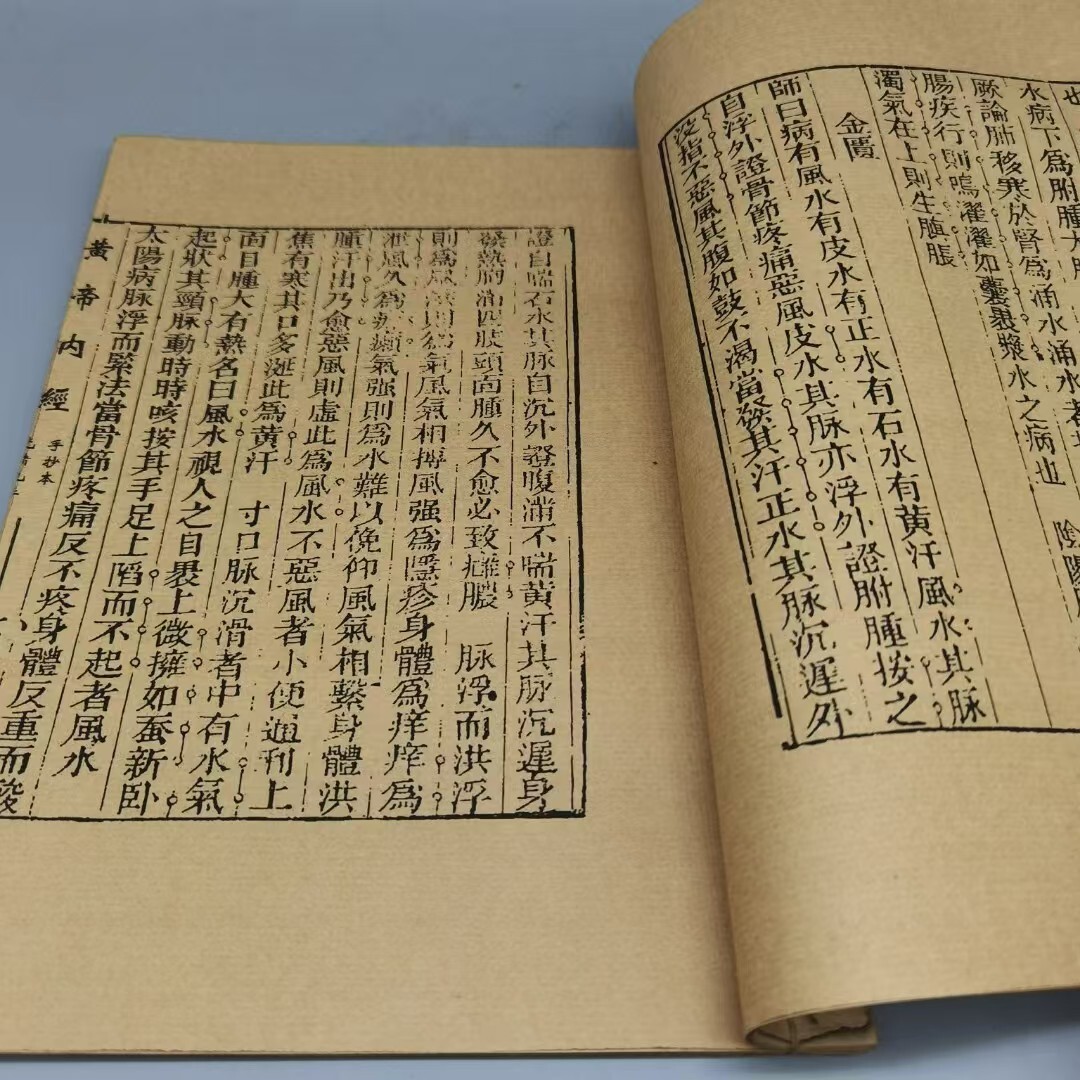 也
水病下爲胕腫大腹
厥論肺移寒於腎爲涌水涌水者
腸疾行則鳴濯濯如囊裹漿水之病也 陰陽
濁氣在上則生䐜脹
金匱
師曰病有風水有皮水有正水有石水有黃汗風水其脉
自浮外證骨節疼痛惡風皮水其脉亦浮外證胕腫按之
沒指不惡風其腹如鼓不渴當發其汗正水其脉沉遲外
證自喘石水其脉自沉外證腹滿不喘黃汗其脉沉遲身
發熱胷滿四肢頭面腫久不愈必致癰膿 脉浮而洪浮
則爲風洪則爲氣風氣相搏風强爲隱疹身體爲痒痒爲
泄風久爲痂癩氣强則爲水難以俛仰風氣相繫身體洪
腫汗出乃愈惡風則虛此爲風水不惡風者小便通利上
焦有寒其口多涎此爲黃汗 寸口脉沉滑者中有水氣
面目腫大有熱名曰風水視人之目裹上微擁如蚕新卧
起狀其頸脉動時時咳按其手足上陷而不起者風水
太陽病脉浮而緊法當骨節疼痛反不疼身體反重而酸
黃帝內經
手抄本